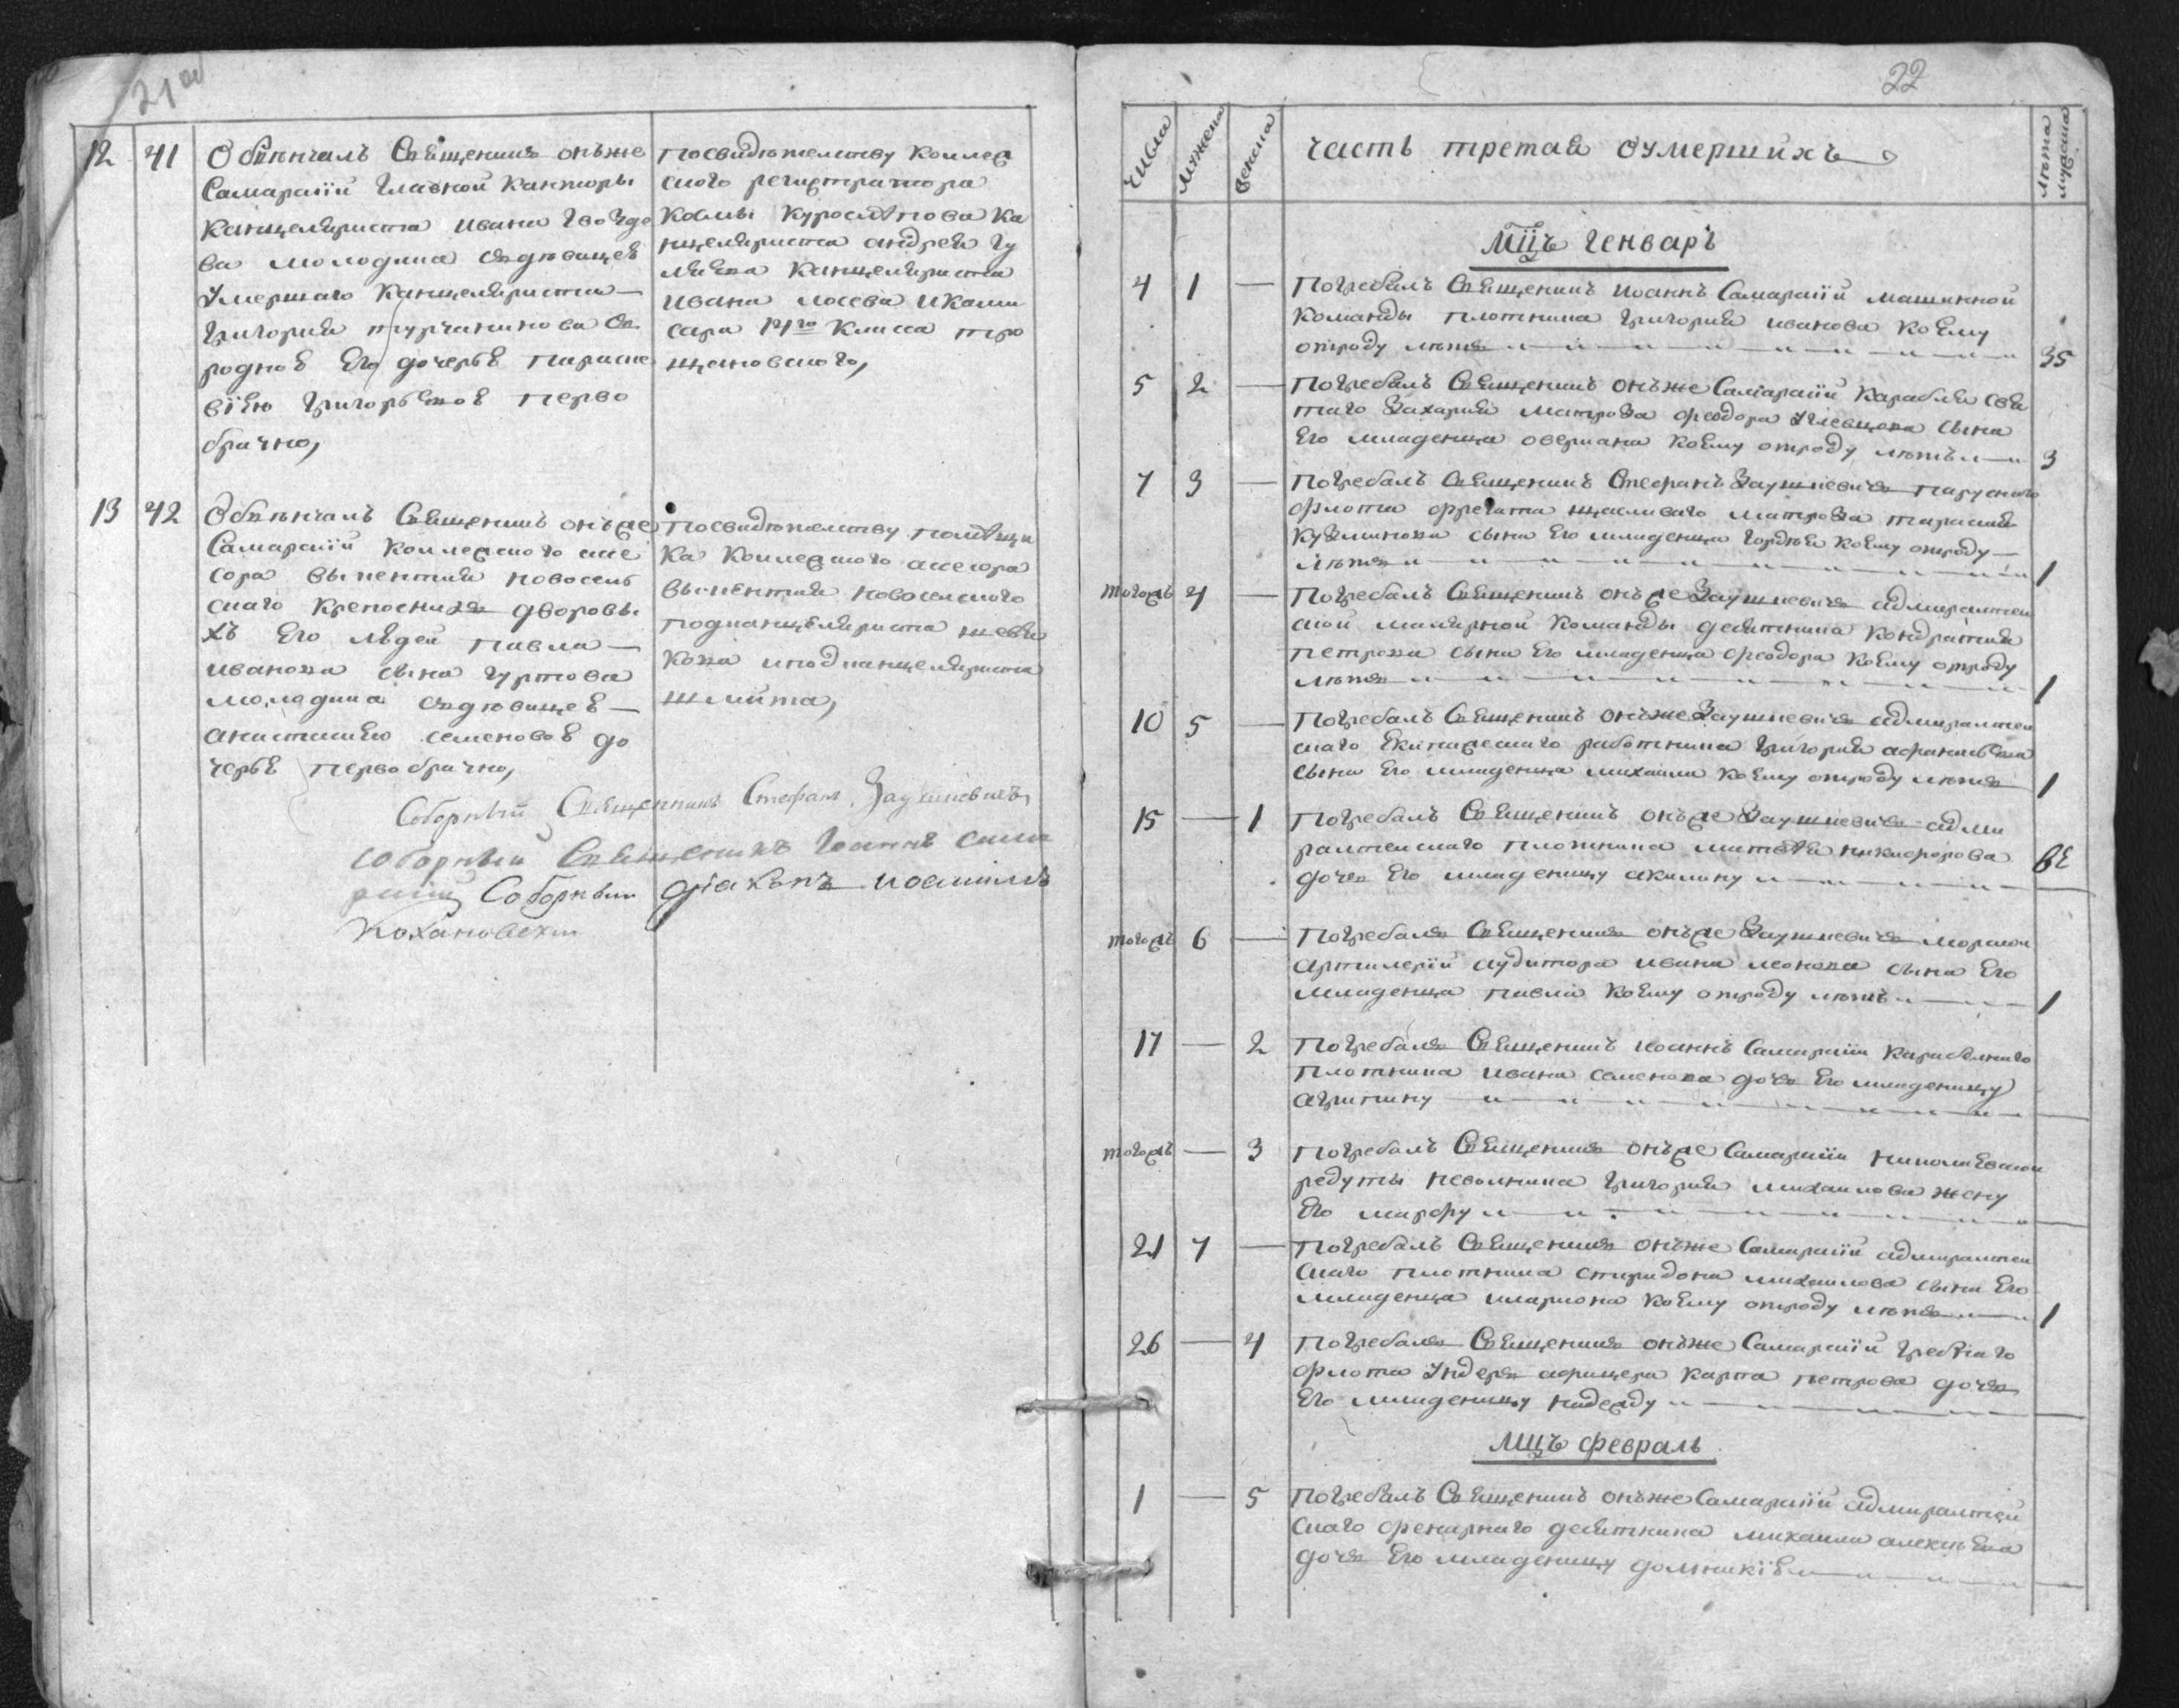 21 об
12 41 Обвѣнчалъ Священникъ онъже
Самарскій Главной Канторы
Канцеляриста Ивана Гвоздо
ва молодика здѣвицеѣ
умершаго Канцеляриста —
Григория турчанинова
родноѣ Его дочерьѣ параске
віею Григорьевоѣ перво
брачно,
посвидѣтелству Коллеж
ского регистратора
Козмы Ка
нцеляриста андрея Гу
Канцеляриста
Ивана лосева икоми
сара 14го Класса тро
щановского,
13 42 Обвѣнчалъ Священникъ онъже
Самарскій Коллежского ассе
сора викентия новосель
скаго Крепосныхъ дворовы
хъ Его людей павла —
иванова сына гуртова
молодика здѣвицеѣ —
анастасиею семеновоѣ до
черьѣ первобрачно,
посвидѣтелству помѣщи
ка Коллежского ассесора
викентия новоселского
подканцеляриста шевя
кова иподканцеляриста
шлийта,
Соборный Священникъ Стефанъ Заушкевичъ
соборный Священникъ Иоаннъ сама
рскій Соборный дїаконъ иоанникъ
Кохановскій
22
числа мужеска женска часть третая оумершихъ лѣта
мцъ генваръ
4 1 — Погребалъ Священникъ иоаннъ Самарскій машинной
Команды плотника Григория иванова коему
отроду лѣтъ 35
5 2 — Погребалъ Священникъ онъже Самарскій Карабля свя
таго Захария матроза феодора сына
Его младенца коему отроду лѣтъ 3
7 3 — Погребалъ Священникъ Стефанъ Заушкевичъ парусного
флота фрегата щасливаго матроза тарасия
Кузминова сына Его младенца гордѣя коему отроду —
лѣтъ 1
тогожъ 4 — Погребалъ Священникъ онъже Заушкевичъ адмиралтей
ской малярной Команды десятника Кондратия
петрова сына Его младенца феодора коему отроду
лѣтъ 1
10 5 — Погребалъ Священникъ онъже Заушкевичъ адмиралтей
скаго Екипажескаго работника Григория афанасьева
сына Его младенца михаила коему отроду лѣтъ 1
15 — 1 Погребалъ Священникъ онъже Заушкевичъ адми
ралтейскаго плотника матвѣя никифорова
дочь Его младеницу акилину
тогожъ 6 — Погребалъ Священникъ онъже Заушкевичъ морской
артилерїи аудитора ивана леонова сына Его
младенца павла коему отроду лѣтъ 1
17 — 2 Погребалъ Священникъ иоаннъ Самарскій Карабелнаго
плотника ивана семенова дочь Его младеницу
агрипину
тогожъ — 3 Погребалъ Священникъ онъже Самарскій николаевской
редуты неволника Григория михаилова жену
Его марфу
21 7 — Погребалъ Священникъ онъже Самарскій адмиралтей
скаго плотника спиридона михаилова сына Его
младенца илариона коему отроду лѣтъ 1
26 — 4 Погребалъ Священникъ онъже Самарскій гребнаго
флота ундеръ афицера Карпа петрова дочь
Его младеницу надежду
мцъ февраль
1 — 5 Погребалъ Священникъ онъже Самарскій адмиралтей
скаго фенарнаго десятника михаила алексѣева
дочь Его младеницу домникію